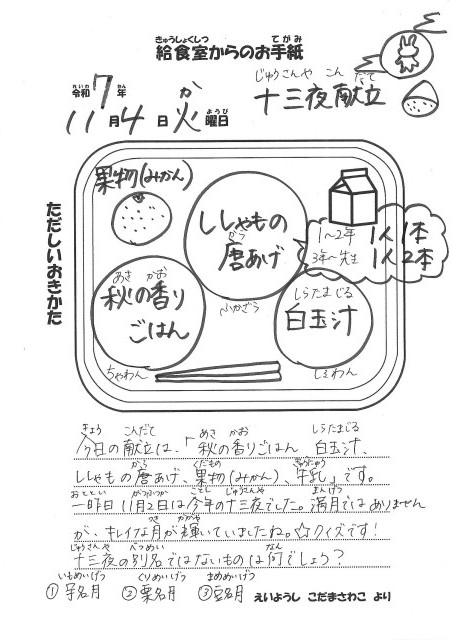 きゅうしょくしつ てがみ
給食室からのお手紙
れいわ ねん か
令和7年
11月4日火曜日
ようび
じゅうさんや こんだて
十三夜献立
ただしいおきかた
果物(みかん)
ししゃもの
から
唐あげ
1〜2年 1人1本
3年〜先生 1人2本
あき かお
秋の香り
ごはん
しらたまじる
白玉汁
ふかざら
ちゃわん
しるわん
きょう こんだて あき かお しらたまじる
今日の献立は、「秋の香りごはん 白玉汁、
から くだもの ぎゅうにゅう
ししゃもの唐あげ、果物(みかん)、牛乳」です。
おととい がつふつか ことし じゅうさんや まんげつ
一昨日11月2日は今年の十三夜でした。満月ではありません
つき かがや
が、キレイな月が輝いていましたね。☆クイズです!
じゅうさんや べつめい なん
十三夜の別名ではないものは何でしょう?
いもめいげつ くりめいげつ まめめいげつ
①芋名月 ②栗名月 ③豆名月
えいようし こだまさわこ より